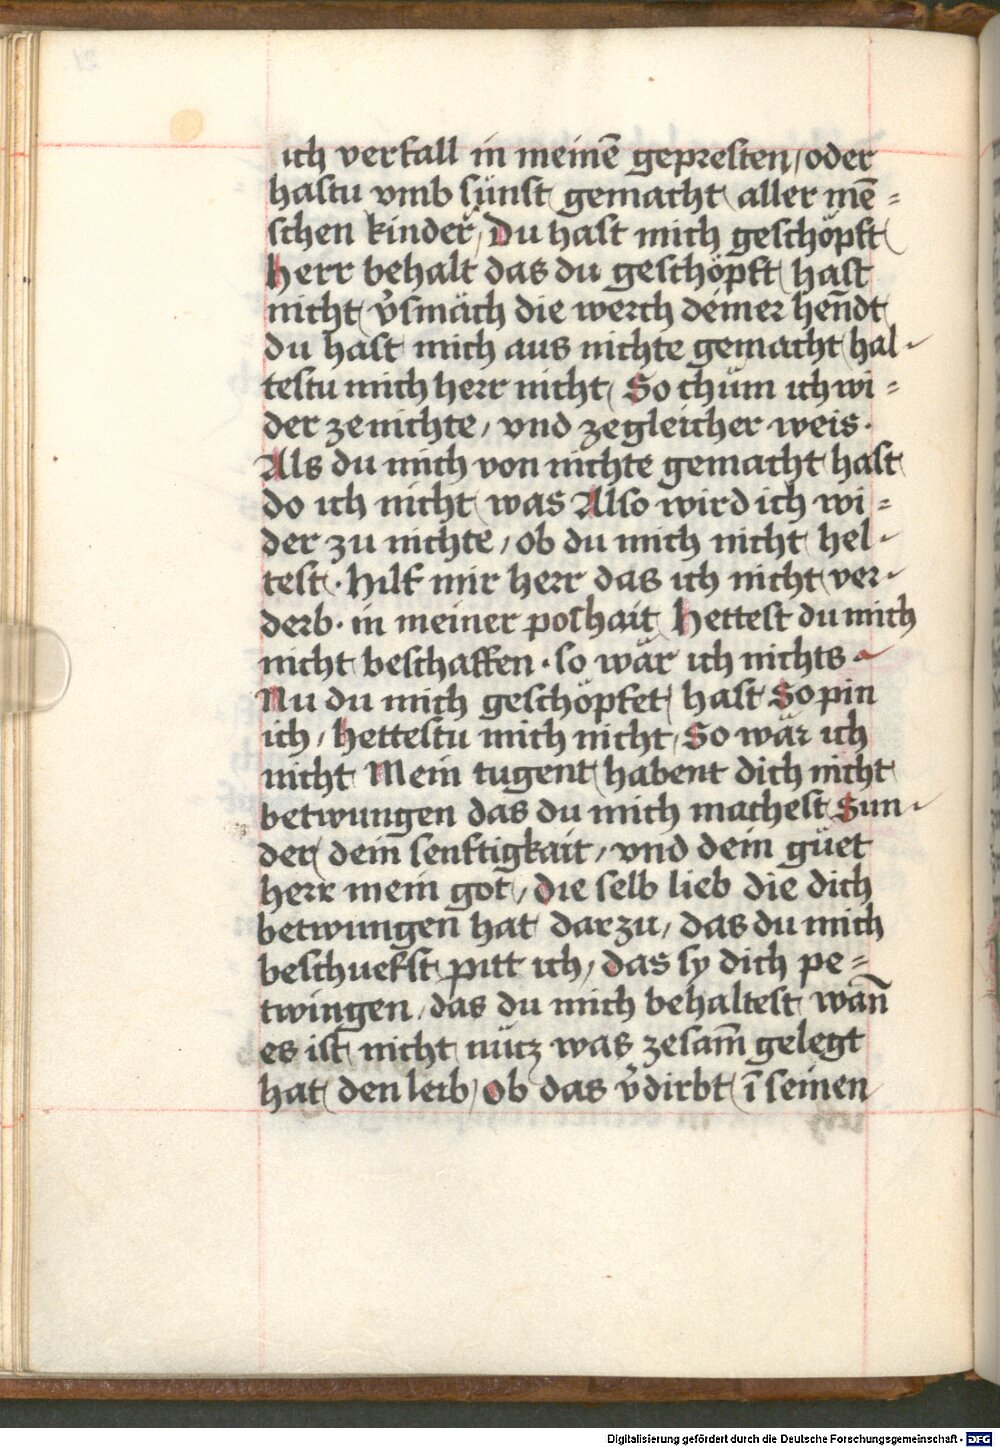 ich verfall in meinē gepresten / oder
hastu vmb sünst gemacht aller mē =
schen kinder / Du hast mich geschöpft
Herr behalt das du geschöpft hast
nicht v̉smäch die werch deiner hen̄dt
du hast mich aus nichte gemacht hal -
testu mich herr nicht / So chüm ich wi =
der ze nichte / vnd ze gleicher weis ·
Als du mich von nichte gemacht hast
do ich nicht was Also wird ich wi =
der zu nichte / ob du mich nicht hel -
test · Hilf mir herr das ich nicht ver -
derb · in meiner poshait Hettest du mich
nicht beschaffen · so wär ich nichts
Nu du mich geschöpfet hast So pin
ich / Hettestu mich nicht / So wär ich
nicht Mein tugent habent dich nicht
betwungen das du mich machest Sun -
der dein senftigkait / vnd dein güet
herr mein got / die selb lieb die dich
betwungen hat dar zu / das du mich
beschuefst pitt ich / das sy dich pe =
twingen / das du mich behaltest wan̄
es ist nicht nücz was zesam̄ gelegt
hat den leib / ob das v̉dirbt ī seinen
Digitalisierung gefördert durch die Deutsche Forschungsgemeinschaft - DFG